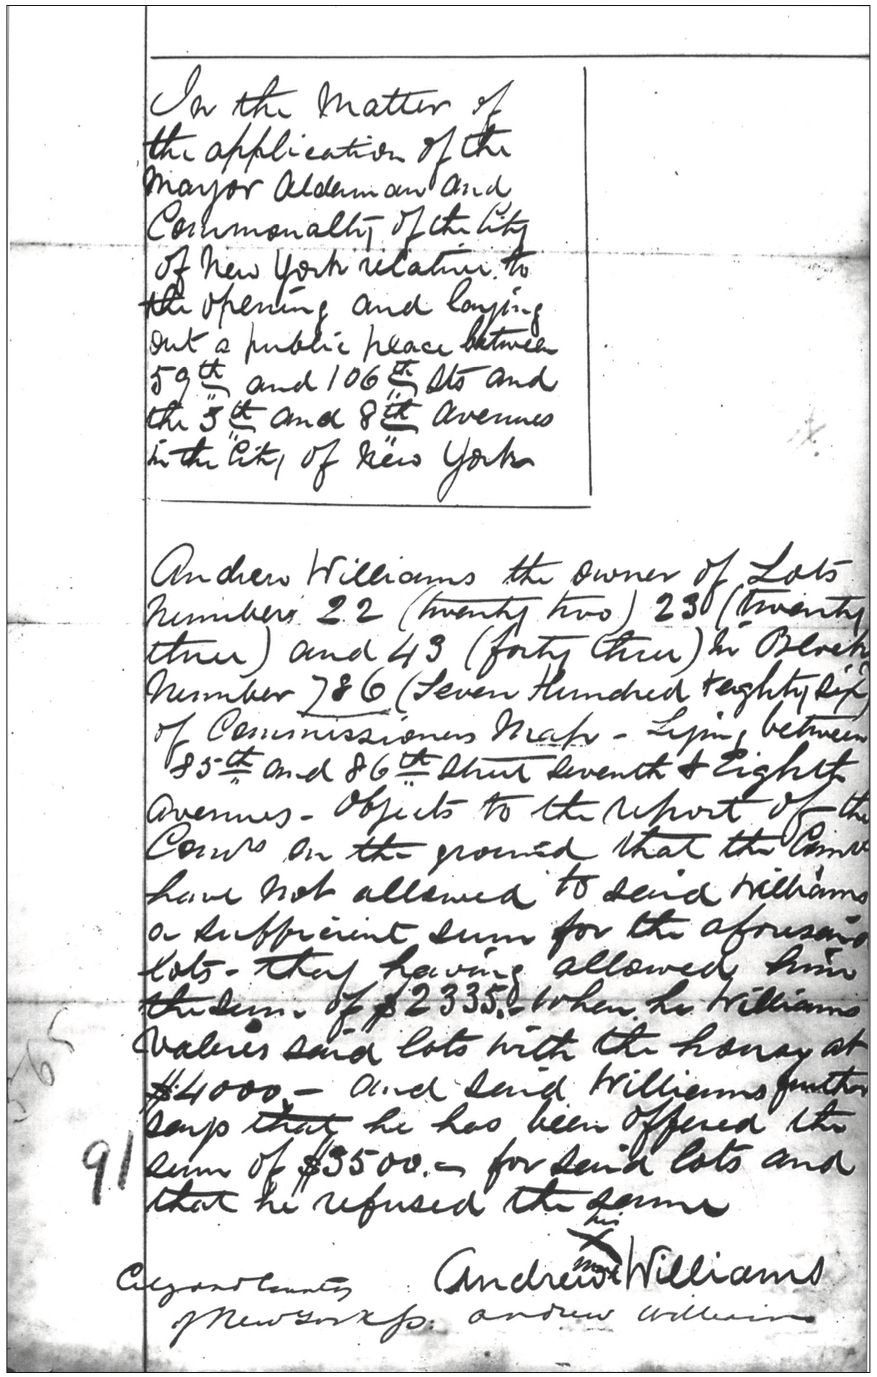 In the Matter of
the application of the
Mayor Alderman and
Commonalty of the City
of New York relative to
the opening and laying
out a public place between
59th and 106th Sts and
the 5th and 8th Avenues
in the City of New York
Andrew Williams the owner of Lots
Numbers 22 (twenty two) 23 (twenty
three) and 43 (forty three) in Block
Number 786 (Seven Hundred + eighty six)
of Commissioners Map - Lying between
85th and 86th Street seventh & Eighth
Avenues - Objects to the report of the
Comrs on the ground that the Comrs
have not allowed to said Williams
a sufficient sum for the aforesaid
lots - they having allowed him
the sum of $2335.- When he Williams
Values said lots with the house at
$4000.- and said Williams further
says that he has been offered the
sum of $3500.- for said lots and
that he refused the same
91
his
X
Andrew Williams
mark
City and County
of New York ss. andrew william